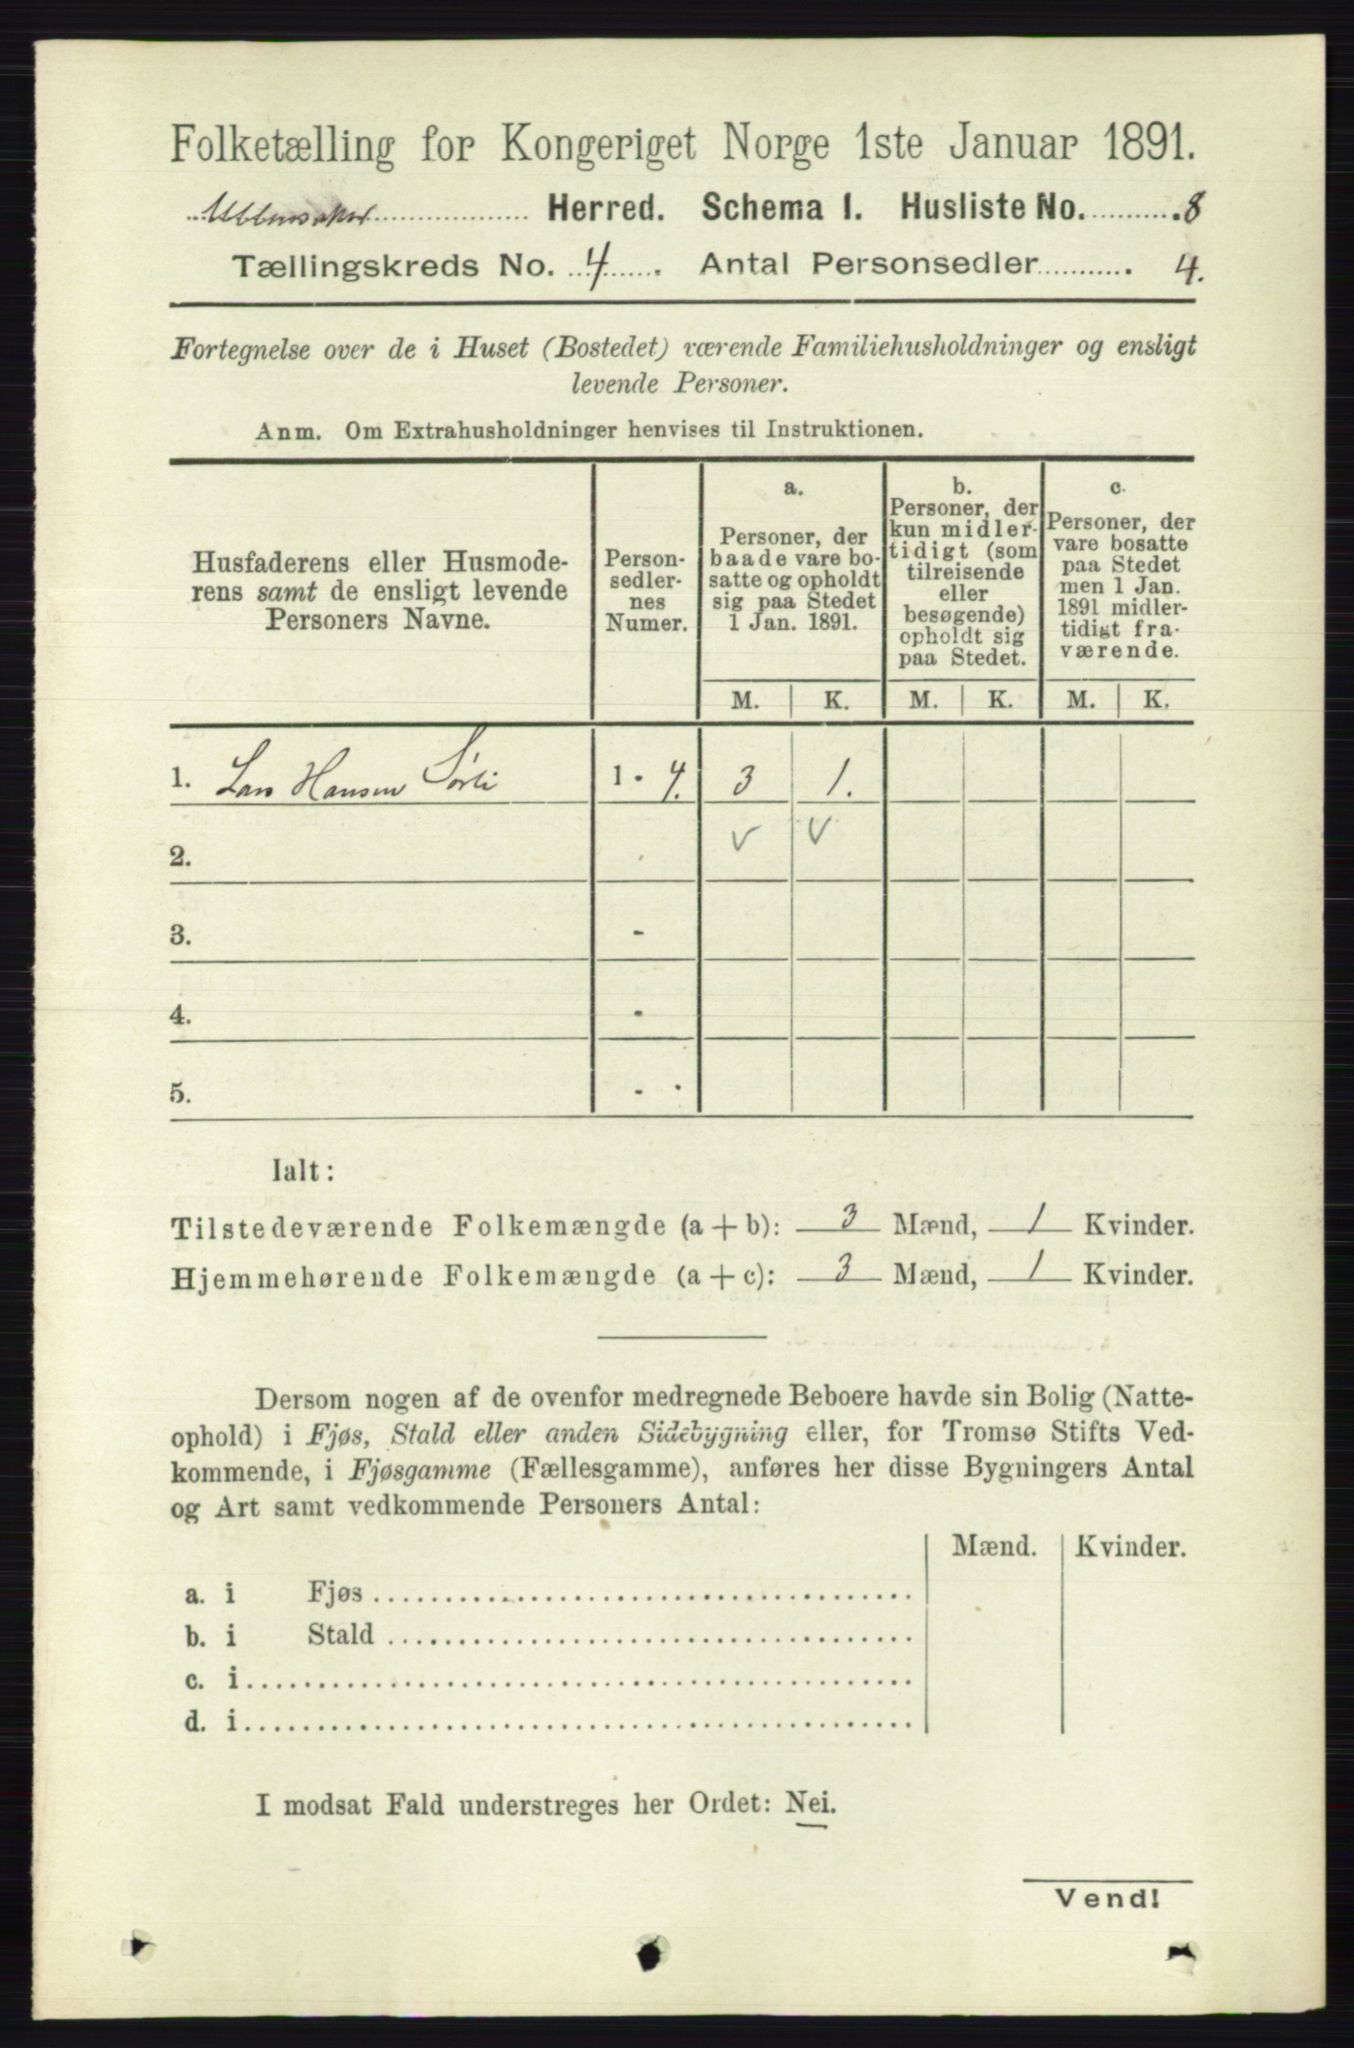 Folketælling for Kongeriget Norge 1ste Januar 1891.
Ullensaker Herred. Schema 1. Husliste No. 8
Tællingskreds No. 4. Antal Personsedler 4.
Fortegnelse over de i Huset (Bostedet) værende Familiehusholdninger og ensligt
levende Personer.
Anm. Om Extrahusholdninger henvises til Instruktionen.
Husfaderens eller Husmode-
rens samt de ensligt levende
Personers Navne.
Person-
sedler-
nes
Numer.
a.
Personer, der
baade vare bo-
satte og opholdt
sig paa Stedet
1 Jan. 1891.
b.
Personer, der
kun midler-
tidigt (som
tilreisende
eller
besøgende)
opholdt sig
paa Stedet.
c.
Personer, der
vare bosatte
paa Stedet
men 1 Jan.
1891 midler-
tidigt fra-
værende.
M. K. M. K. M. K.
1. Lars Hansen Sörli 1 - 4. 3 1.
2.
3. -
4. -
5. -
Ialt:
Tilstedeværende Folkemængde (a + b): 3 Mænd, 1 Kvinder.
Hjemmehørende Folkemængde (a + c): 3 Mænd, 1 Kvinder.
Dersom nogen af de ovenfor medregnede Beboere havde sin Bolig (Natte-
ophold) i Fjøs, Stald eller anden Sidebygning eller, for Tromsø Stifts Ved-
kommende, i Fjøsgamme (Fællesgamme), anføres her disse Bygningers Antal
og Art samt vedkommende Personers Antal:
Mænd. Kvinder.
a. i Fjøs
b. i Stald
c. i
d. i
I modsat Fald understreges her Ordet: Nei.
Vend!